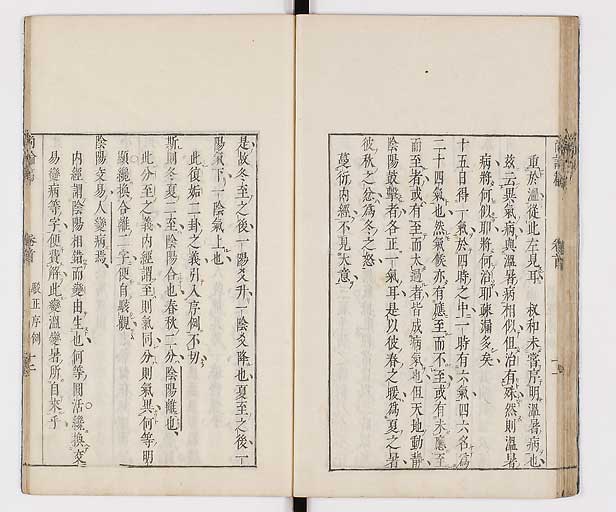 重於溫從此左見耳　叔和未嘗序明溫暑病也
茲云異氣病與溫暑病相似但治有殊然則溫暑
病將何似耶將何治耶疎漏多矣
十五日得一氣於四時之中一時有六氣四六名爲
二十四氣也然氣候亦有應至而不至或有未應至
而至者或有至而太過者皆成病氣也但天地動靜
陰陽鼓擊者各正一氣耳是以彼春之暖爲夏之暑
彼秋之忿爲冬之怒
蔓衍内經不見大意
是故冬至之後一陽爻升一陰爻降也夏至之後一
陽氣下一陰氣上也
此復姤二卦之義引入序例不切
斯則冬夏二至陰陽合也春秋二分陰陽離也
此分至之義内經謂至則氣同分則氣異何等明
顯纔換合離二字便自駭觀
陰陽交易人變病焉
内經謂陰陽相錯而變由生也何等圓活纔換交
易變病等字便費解此變溫變暑所自來乎
尚論篇　卷首　駁正序例　十二